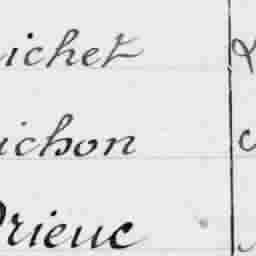 ichet
ichon
rieuc